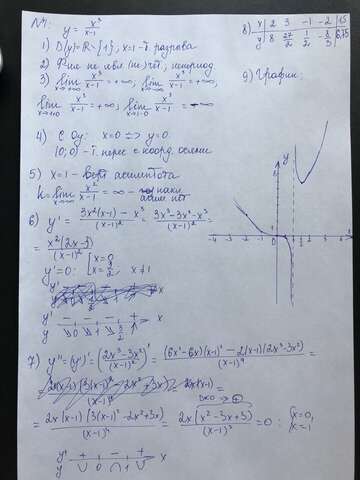 №1. y = x³/(x-1)
1) D(y) = R - {1}, x=1 - т. разрыва
3) lim x→+∞ x³/(x-1) = +∞, lim x→-∞ x³/(x-1) = +∞,
lim x→1+0 x³/(x-1) = +∞, lim x→1-0 x³/(x-1) = -∞
4) С Oy: x=0 => y=0.
(0; 0) - т. перес с коорд. осями
5) x=1 - верт асимптота
k = lim x→∞ x²/(x-1) = ∞ - накл асим нет
6) y' = (3x²(x-1) - x³)/(x-1)² = (3x³-3x²-x³)/(x-1)² =
= x²(2x-3)/(x-1)²
y'=0: [x=0 x=3/2, x≠1
y' - - - + x
y 0 1 3/2
7) y'' = (y')' = ((2x³-3x²)/(x-1)²)' = ((6x²-6x)(x-1)² - 2(x-1)(2x³-3x²))/(x-1)⁴ =
= 2x(x-1)(3(x-1)² - 2x²+3x)/(x-1)⁴ = 2x(x²-3x+3)/(x-1)³ = 0: {x=0, x=1
D<0 => +
y'' + - + x
y 0 1
8) x 2 3 -1 -2 1,5
y 8 27/2 1/2 8/3 6,75
9) График:
y
-4 -3 -2 -1 0 1 2 3 4 x